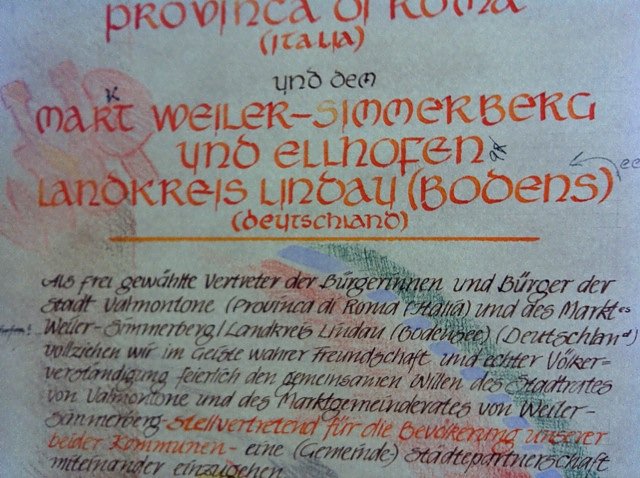 PROVINCA DI ROMA
(ITALIA)
UND DEM
K
MARKT WEILER-SIMMERBERG
UND ELLHOFEN
LANDKREIS LINDAU (BODENS)
ee
(DEUTSCHLAND)
Als frei gewählte Vertreter der Bürgerinnen und Bürger der
Stadt Valmontone (Provinca di Roma (Italia) und des Marktes
Weiler-Simmerberg/Landkreis Lindau (Bodensee) (Deutschland)
vollziehen wir im Geiste wahrer Freundschaft und echter Völker-
verständigung feierlich den gemeinsamen Willen des Stadtrates
von Valmontone und des Marktgemeinderates von Weiler-
Simmerberg - stellvertretend für die Bevölkerung unserer
beider Kommunen - eine (Gemeinde) Städtepartnerschaft
miteinander einzugehen